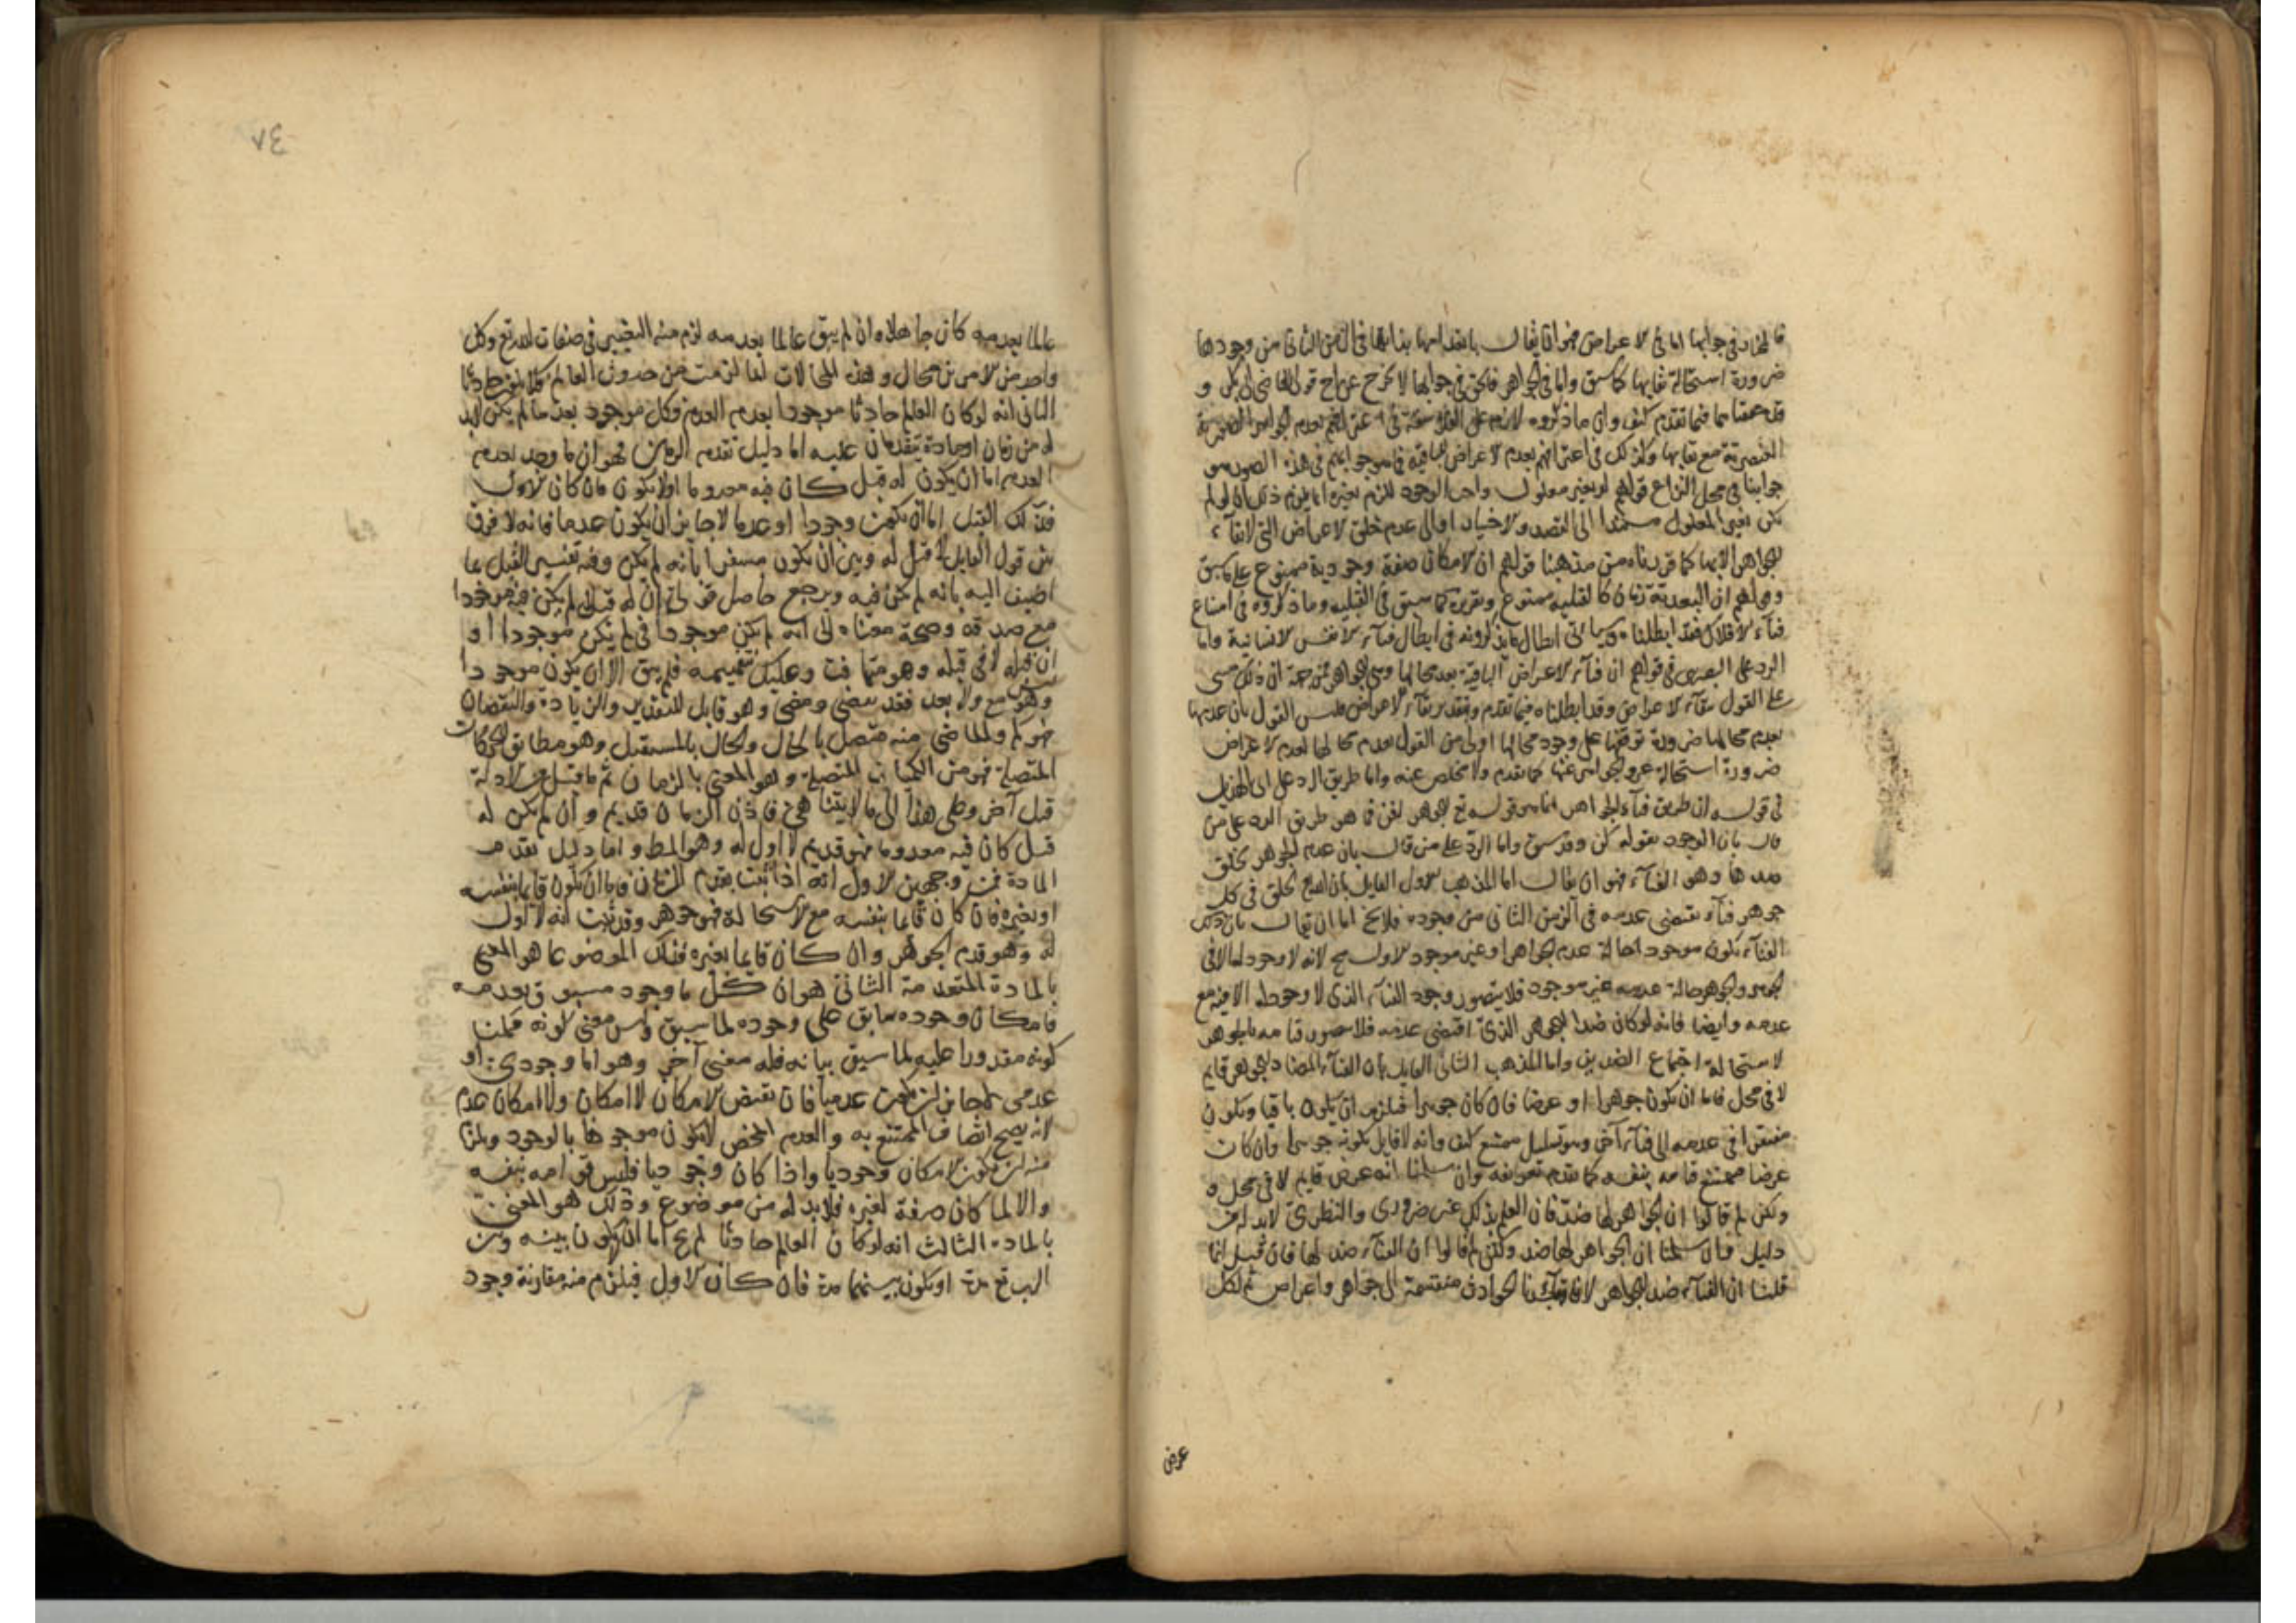 فالحق في جوابها اما في الاعراض فهو ان يقال بانعدامها بذاتها في الزمن الثاني من وجودها
ضرورة استحالة بقايها كما سبق واما في الجواهر فالحق في جوابها لا يخرج عن قول القاضي ابي بكر و
قد حققناهما فيما تقدم كيف وان ما ذكروه لازم على الفلاسفة في اعترافهم بعدم الجواهر الصورية
العنصرية مع بقايها وكذلك في اعترافهم بعدم الاعراض الباقية فما هو جوابهم في هذه الصور هو
جوابنا في محل النزاع قولهم لو تغير معلول واجب الوجود للزم تغيره انما يلزم ذلك ان لو لم
يكن تغير المعلول مستندا الى القصد والاختيار او الى عدم خلق الاعراض التي لا بقاء
للجواهر الا بها كما قررناه من مذهبنا قولهم ان الامكان صفة وجودية ممنوع على ما سبق
وقولهم ان البعدية زمان كالقبلية ممنوع وتقريره كما سبق في القبلية وما ذكروه في امتناع
فناء الافلاك فقد ابطلناه وسياتي ابطال ما يذكرونه في ابطال فناء الانفس الانسانية واما
الرد على البصري في قولهم ان فناء الاعراض الباقية بعد محالها وهي الجواهر فمن جهة ان ذلك مبني
على القول ببقاء الاعراض وقد ابطلناه فيما تقدم وبتقدير بقاء الاعراض فليس القول بان عدمها
بعدم محالها ضرورة توقفها على وجود محالها اولى من القول بعدم محالها لعدم الاعراض
ضرورة استحالة عرو الجواهر عنها كما تقدم ولا مخلص عنه واما طريق الرد على ابي الهذيل
في قوله ان طريق فناء الجواهر انما هو قوله تع للجوهر افن فما هو طريق الرد على من
قال بان الوجود بقوله كن وقد سبق واما الرد على من قال بان عدم الجوهر بخلق
ضدها وهو الفناء فهو ان يقال اما المذهب الاول القايل بان الله تع يخلق في كل
جوهر فناء يقتضي عدمه في الزمن الثاني من وجوده فلا يخ اما ان يقال بان ذلك
الفناء يكون موجودا حالة عدم الجواهر او غير موجود الاول مح لانه لا وجود له الا في
الجوهر والجوهر حالة عدمه غير موجود فلا يتصور وجود الفناء الذي لا وجود له الا فيه مع
عدمه وايضا فانه لو كان ضدا للجوهر الذي اقتضى عدمه فلا يتصور قيامه بالجوهر
لاستحالة اجتماع الضدين واما المذهب الثاني القايل بان الفناء المضاد للجوهر قايم
لا في محل فاما ان يكون جوهرا او عرضا فان كان جوهرا فيلزم ان يكون باقيا ويكون
مفتقرا في عدمه الى فناء آخر وهو تسلسل ممتنع كيف وانه لا قايل بكونه جوهرا وان كان
عرضا فممتنع قيامه بنفسه كما تقدم تعريفه وان سلمنا انه عرض قايم لا في محل
ولكن لم قالوا ان الجواهر لها ضد فان العلم بذلك غير ضروري والنظري لا بد له من
دليل وان سلمنا ان الجواهر لها ضد ولكن لم قالوا ان الفناء ضد لها فان قيل انما
قلنا ان الفناء ضد الجواهر لانا وجدنا الحوادث منقسمة الى جواهر واعراض ثم لكل
عرض
٣٨
عالما بعدمه كان جاهلا وان لم يبق عالما بعدمه لزم منه التغيير في صفات الله تع وكل
واحد من الامرين محال وهذه المحالات انما لزمت من حدوث العالم فلا يكون حادثا
الثاني انه لو كان العالم حادثا موجودا بعدم العدم وكل موجود بعد ما لم يكن لا بد
له من زمان او مادة يتقدمان عليه اما دليل تقدم الزمان فهو ان ما وجد بعدم
العدم اما ان يكون له قبل كان فيه معدوما او لا يكون فان كان الاول
فذلك القبل اما ان يكون وجودا او عدما لا جايز ان يكون عدما فانه لا فرق
بين قول القايل لا قبل له وبين ان يكون مفسرا بانه لم يكن وفيه تفسير القبل بما
اضيف اليه بانه لم يكن فيه ويرجع حاصل قولهم ان له قبل لم يكن فيه موجودا
مع صدقه وصحة معناه الى انه لم يكن موجودا في لم يكن موجودا او
ان قبله لا في قبله وهو متهافت وعليك بتفهيمه فلم يبق الا ان يكون موجودا
وهو مع ولا بعد فقد تقضى ومضى وهو قابل للتقدير والزيادة والنقصان
فهو كم والماضي منه متصل بالحال والحال بالمستقبل وهو مطابق للحركات
المتصلة فهو من الكميات المتصلة وهو المعني بالزمان ثم ما قبل من الادلة
قبل آخر وعلى هذا الى ما لا يتناهى فاذن الزمان قديم وان لم يكن له
قبل كان فيه معدوما فهو قديم لا اول له وهو المط واما دليل تقدم
المادة فمن وجهين الاول انه اذا ثبت تقدم الزمان فاما ان يكون قايما بنفسه
او بغيره فان كان قايما بنفسه مع الاستحالة فهو جوهر وقد ثبت انه لا اول
له وهو قدم الجوهر وان كان قايما بغيره فذلك الموضوع ما هو المعني
بالمادة المتقدمة الثاني هو ان كل ما وجود مسبوق بعدمه
فامكان وجوده سابق على وجوده لما سبق وليس معنى كونه ممكنا
كونه مقدورا عليه لما سبق بيانه فله معنى آخر وهو اما وجودي او
عدمي لا جايز ان يكون عدميا فان نقيض الامكان لا امكان ولا امكان عدم
لانه يصح اتصاف الممتنع به والعدم المحض لا يكون موجودا بالوجود ويلزم
منه ان يكون الامكان وجوديا واذا كان وجوديا فليس قوامه بنفسه
والا لما كان صفة لغيره فلا بد له من موضوع وذلك هو المعني
بالمادة الثالث انه لو كان العالم حادثا لم يخ اما ان يكون بينه وبين
الرب تع مدة او يكون بينهما مدة فان كان الاول فيلزم منه مقارنة وجود